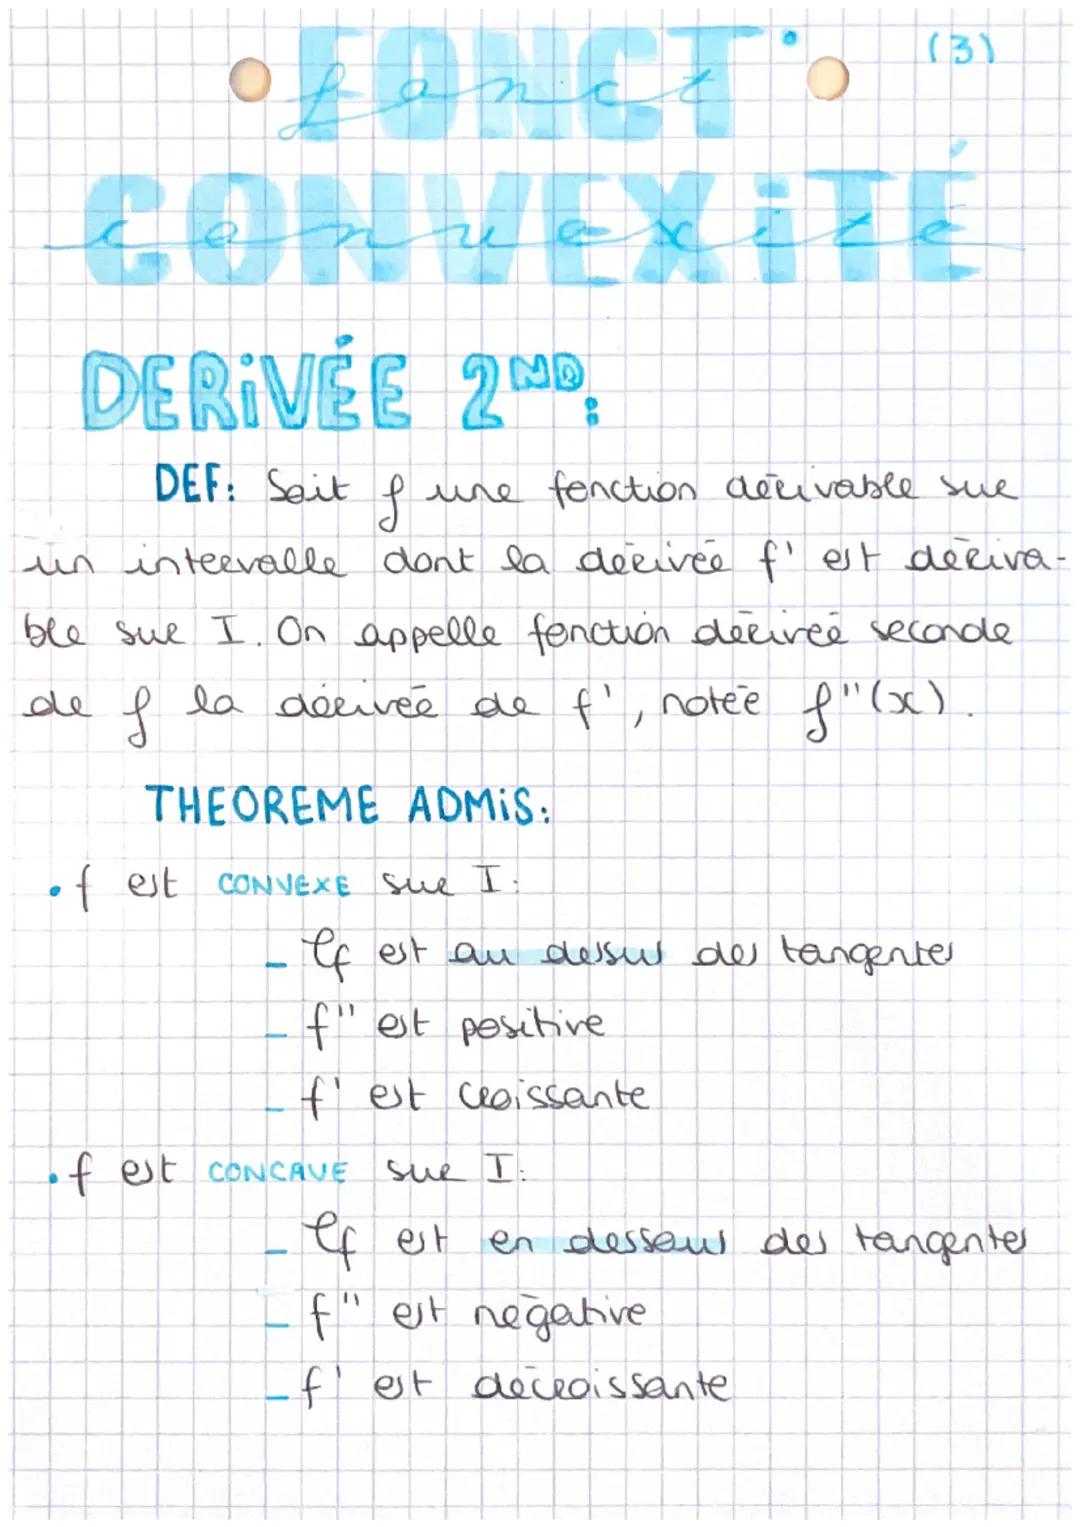 (3)
FONCT°
fonct
CONVEXiTÉ
convexité
DERiVÉE 2ND:
DEF: Soit f une fonction dérivable sur
un intervalle dont la dérivée f' est dériva-
ble sur I. On appelle fonction dérivée seconde
de f la dérivée de f', notée f"(x).
THEOREME ADMiS:
• f est CONVEXE sur I:
- Cf est au dessus des tangentes
- f" est positive
- f' est croissante
• f est CONCAVE sur I:
- Cf est en dessous des tangentes
- f" est négative
- f' est décroissante